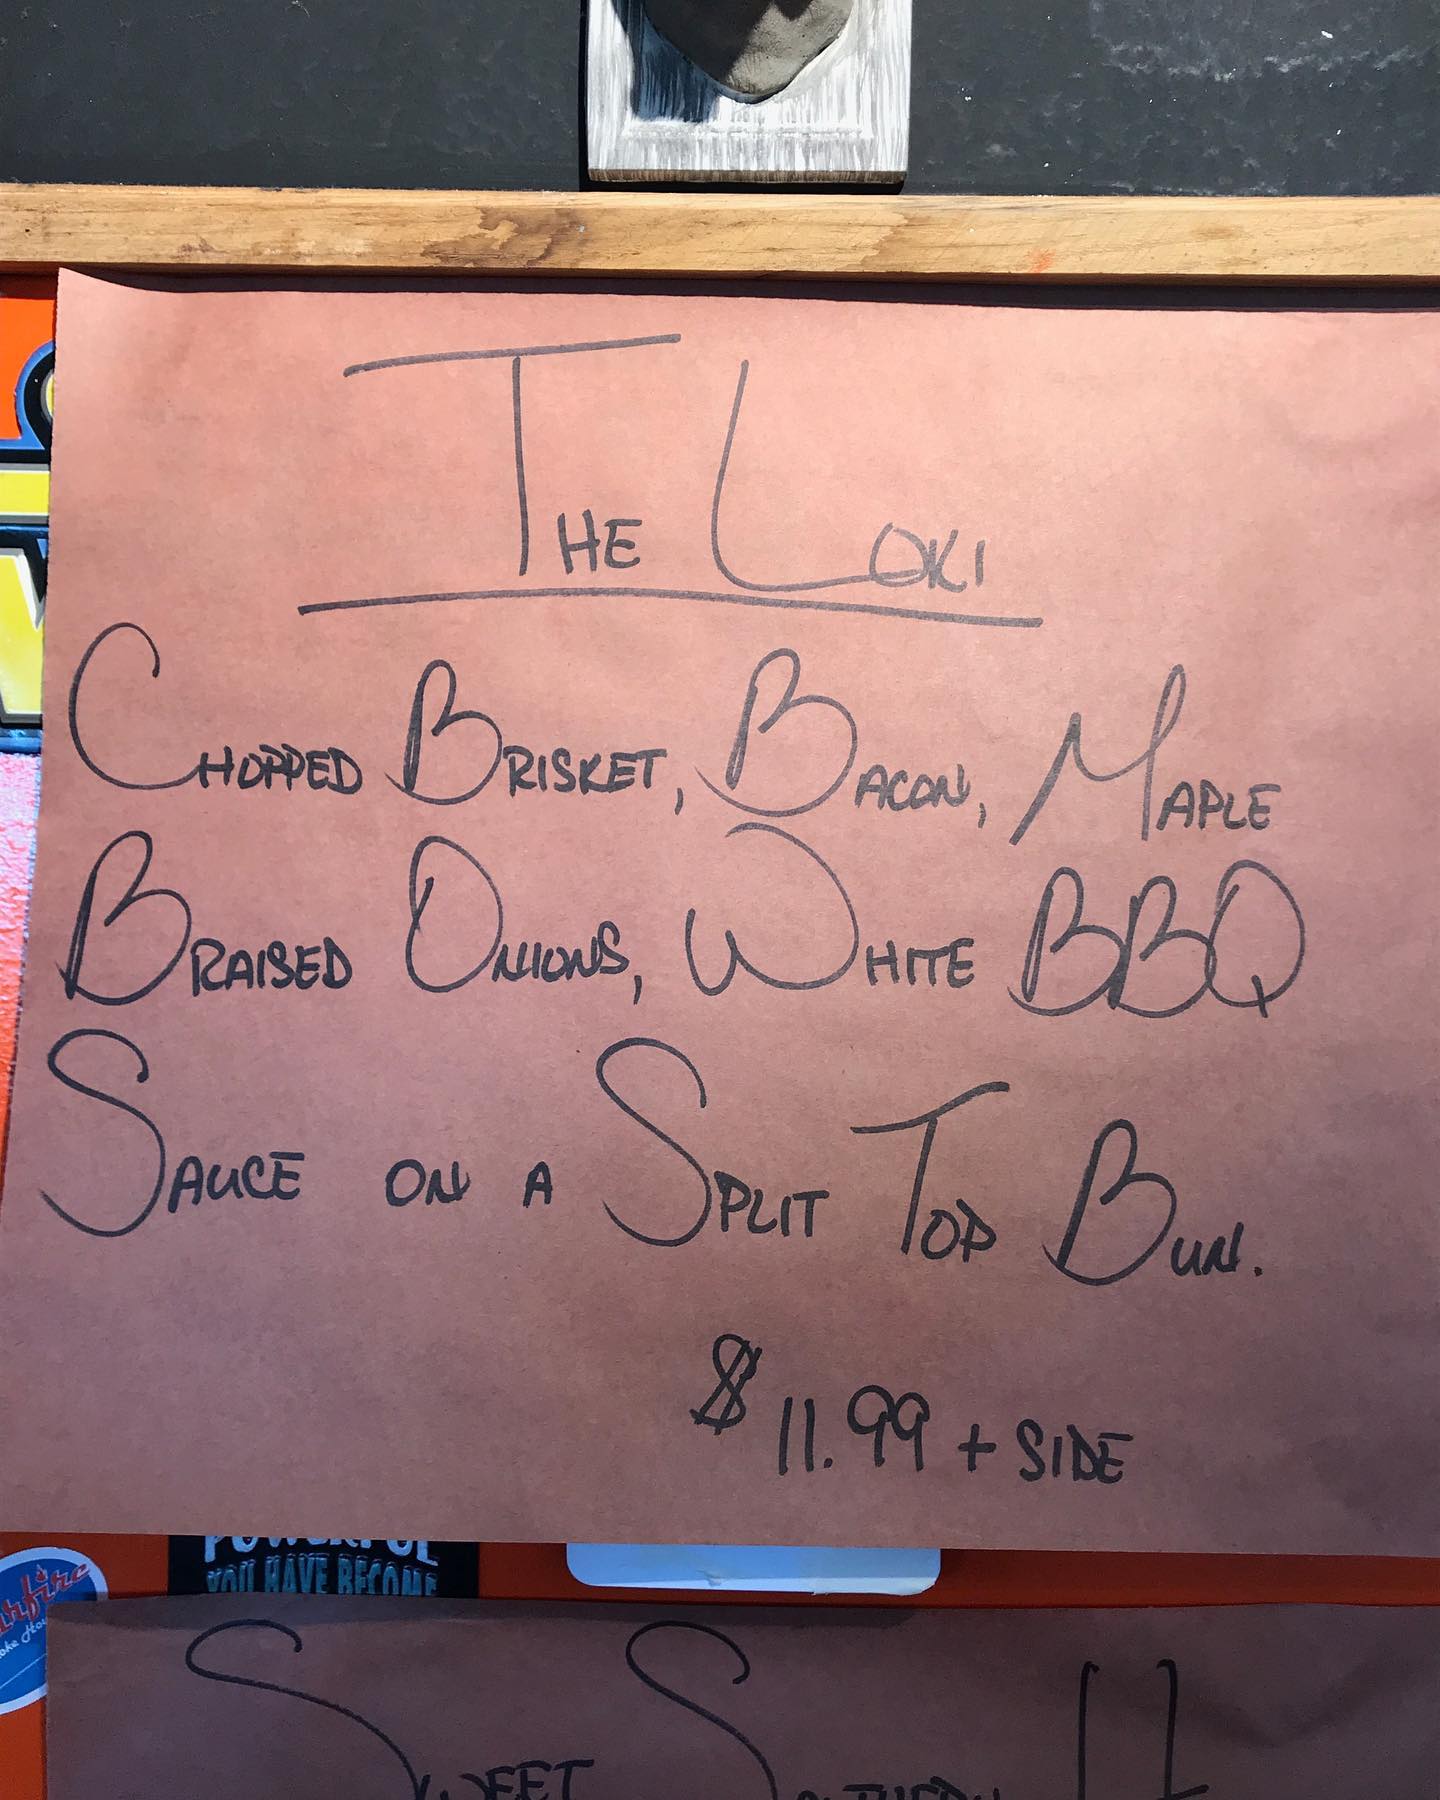 THE LOKI
CHOPPED BRISKET, BACON, MAPLE
BRAISED ONIONS, WHITE BBQ
SAUCE ON A SPLIT TOP BUN.
$11.99 + SIDE
POWERFUL
YOU HAVE BECOME
SWEET SOUTHERN